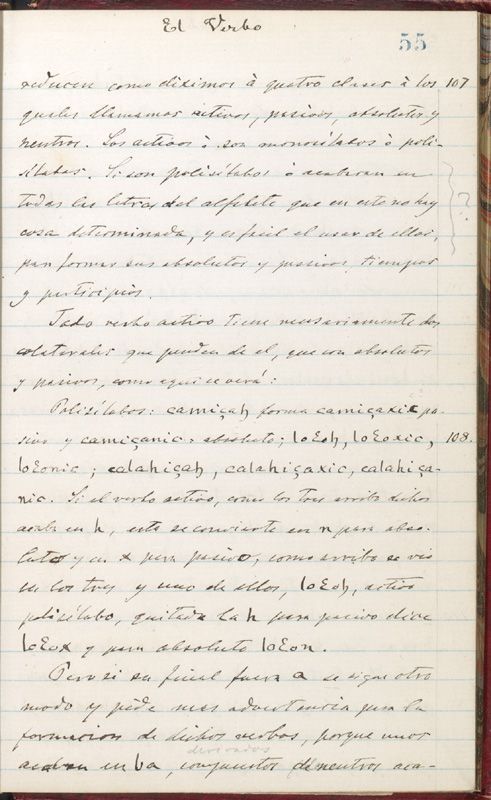 El Verbo
55
reducen como diximos à quatro clases à los 107
quales llamamos activos, pasivos, absolutos y
neutros. Los activos ò son monosílabos ò poli-
sílabos. Si son polisílabos ò acabaran en
todas las letras del alfabete que en esto no hay ?
cosa determinada, y es facil el usar de ellos,
para formar sus absolutos y pasivos, tiempos
y participios.
Todo verbo activo tiene necesariamente dos
colaterales que penden de el, que son absolutos
y pasivos, como aqui se verá:
Polisílabos: camiçah forma camiçaxic pa-
sivo y camiçanic: absoluto; loƐoh, loƐoxic, 108.
loƐonic; calahiçah, calahiçaxic, calahiça-
nic. Si el verbo activo, como los tres arriba dichos
acaba en h, esta se convierte en n para abso-
luto y en x para pasivo, como arriba se vio
en los tres y uno de ellos, loƐoh, activo
polisílabo, quitada la h para pasivo dice
loƐox y para absoluto loƐon.
Pero si su final fuera a se sigue otro
modo y pide mas advertencia para la
formacion de dichos verbos, porque unos
derivados
acaban en ba, compuestos de neutros aca-